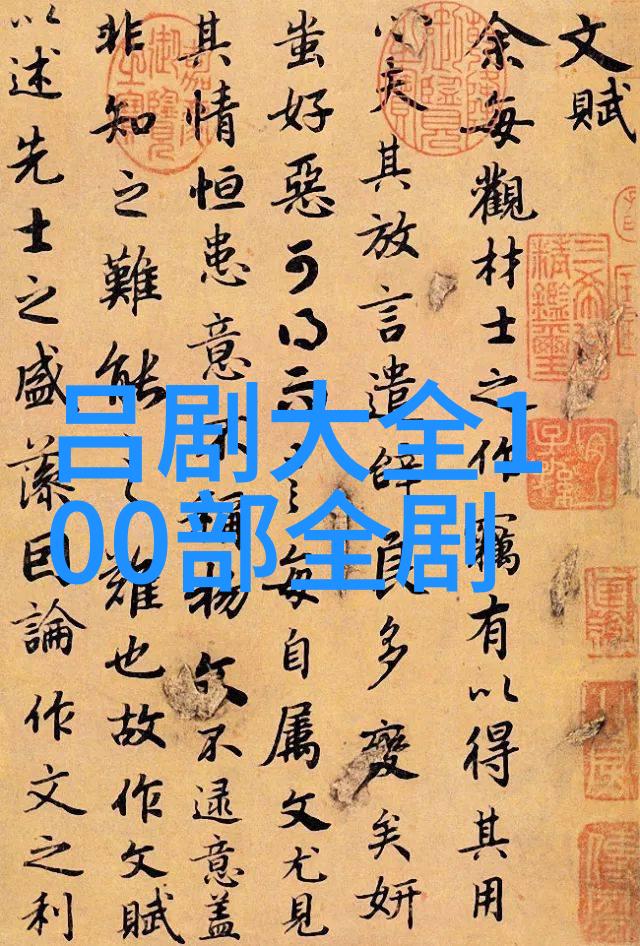 文賦
余每觀材士之作竊有以得其用
心夫其放言遣辭良多變矣妍
蚩好惡可得而言每自屬文尤見
其情恒患意不稱物文不逮意蓋
非知之難能之難也故作文賦
以述先士之盛藻因論作文之利
吕剧大全1
00部全剧
三希堂
精鑑璽
宜
子孫